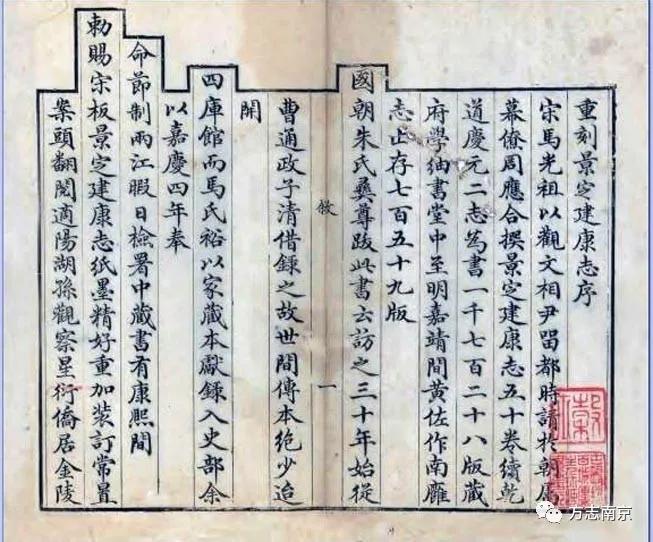 重刻景定建康志序
宋馬光祖以觀文相尹畱都時請於朝屬
幕僚周應合撰景定建康志五十卷續乾
道慶元二志爲書一千七百二十八版藏
府學紬書堂中至明嘉靖間黃佐作南廱
志止存七百五十九版
國朝朱氏彝尊跋此書云訪之三十年始從
敘
一
曹通政子清借錄之故世間傳本絕少迨
開
四庫館而馬氏裕以家藏本獻錄入史部余
以嘉慶四年奉
命節制兩江暇日檢署中藏書有康熙間
勅賜宋板景定建康志紙墨精好重加装訂常置
案頭翻閱適陽湖孫觀察星衍僑居金陵
方志南京